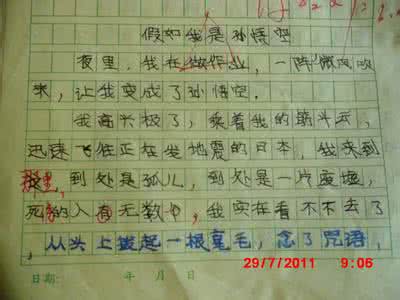 假如我是孙悟空
夜里，我在做作业，一阵微风吹
来，让我变成了孙悟空。
我高兴极了，乘着我的筋斗云，
迅速飞往正在发地震的日本，我来到
那里，到处是孤儿，到处是一片废墟，
死的人有无数中，我实在看不下去了
，从头上拔起一根毫毛，念了咒语，
日期： 年 月 日
29/7/2011 9:06